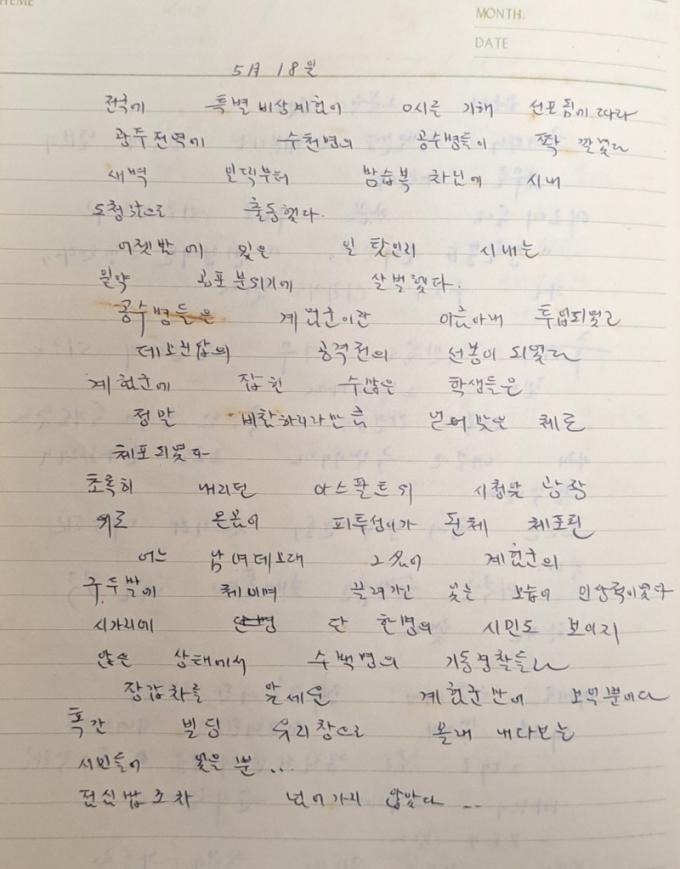 HEME
MONTH.
DATE
5月 18일
전국에 특별비상계엄이 0시를 기해 선포됨에 따라
광주전역에 수천명의 공수병들이 쫙 깔렸다
새벽 부터 밤습복 차림에 시내
도청앞으로 출동했다.
어젯밤에 있은 일 탓인지 시내는
원약 공포분위기에 살벌했다.
공수병들은 계엄군이란 이름아래 투입되었고
데모진압의 공격전의 선봉이 되었다
계엄군에 잡힌 수많은 학생들은
정말 비참하리라만큼 얻어맞은 체로
체포되었다
초록히 내리던 아스팔트의 시청앞 광장
위로 온몸이 피투성이가 된체 체포된
어느 남녀데모대 2名이 계엄군의
구두발에 체이며 끌려가고 있는 모습이 인상적이었다
시가지에 단 한명의 시민도 보이지
않은 상태에서 수백명의 기동경찰들과
장갑차를 앞세운 계엄군만이 보일뿐이다
혹간 빌딩 유리창으로 몰래 내다보는
시민들이 있을 뿐...
점심밥조차 넘어가지 않았다 ...